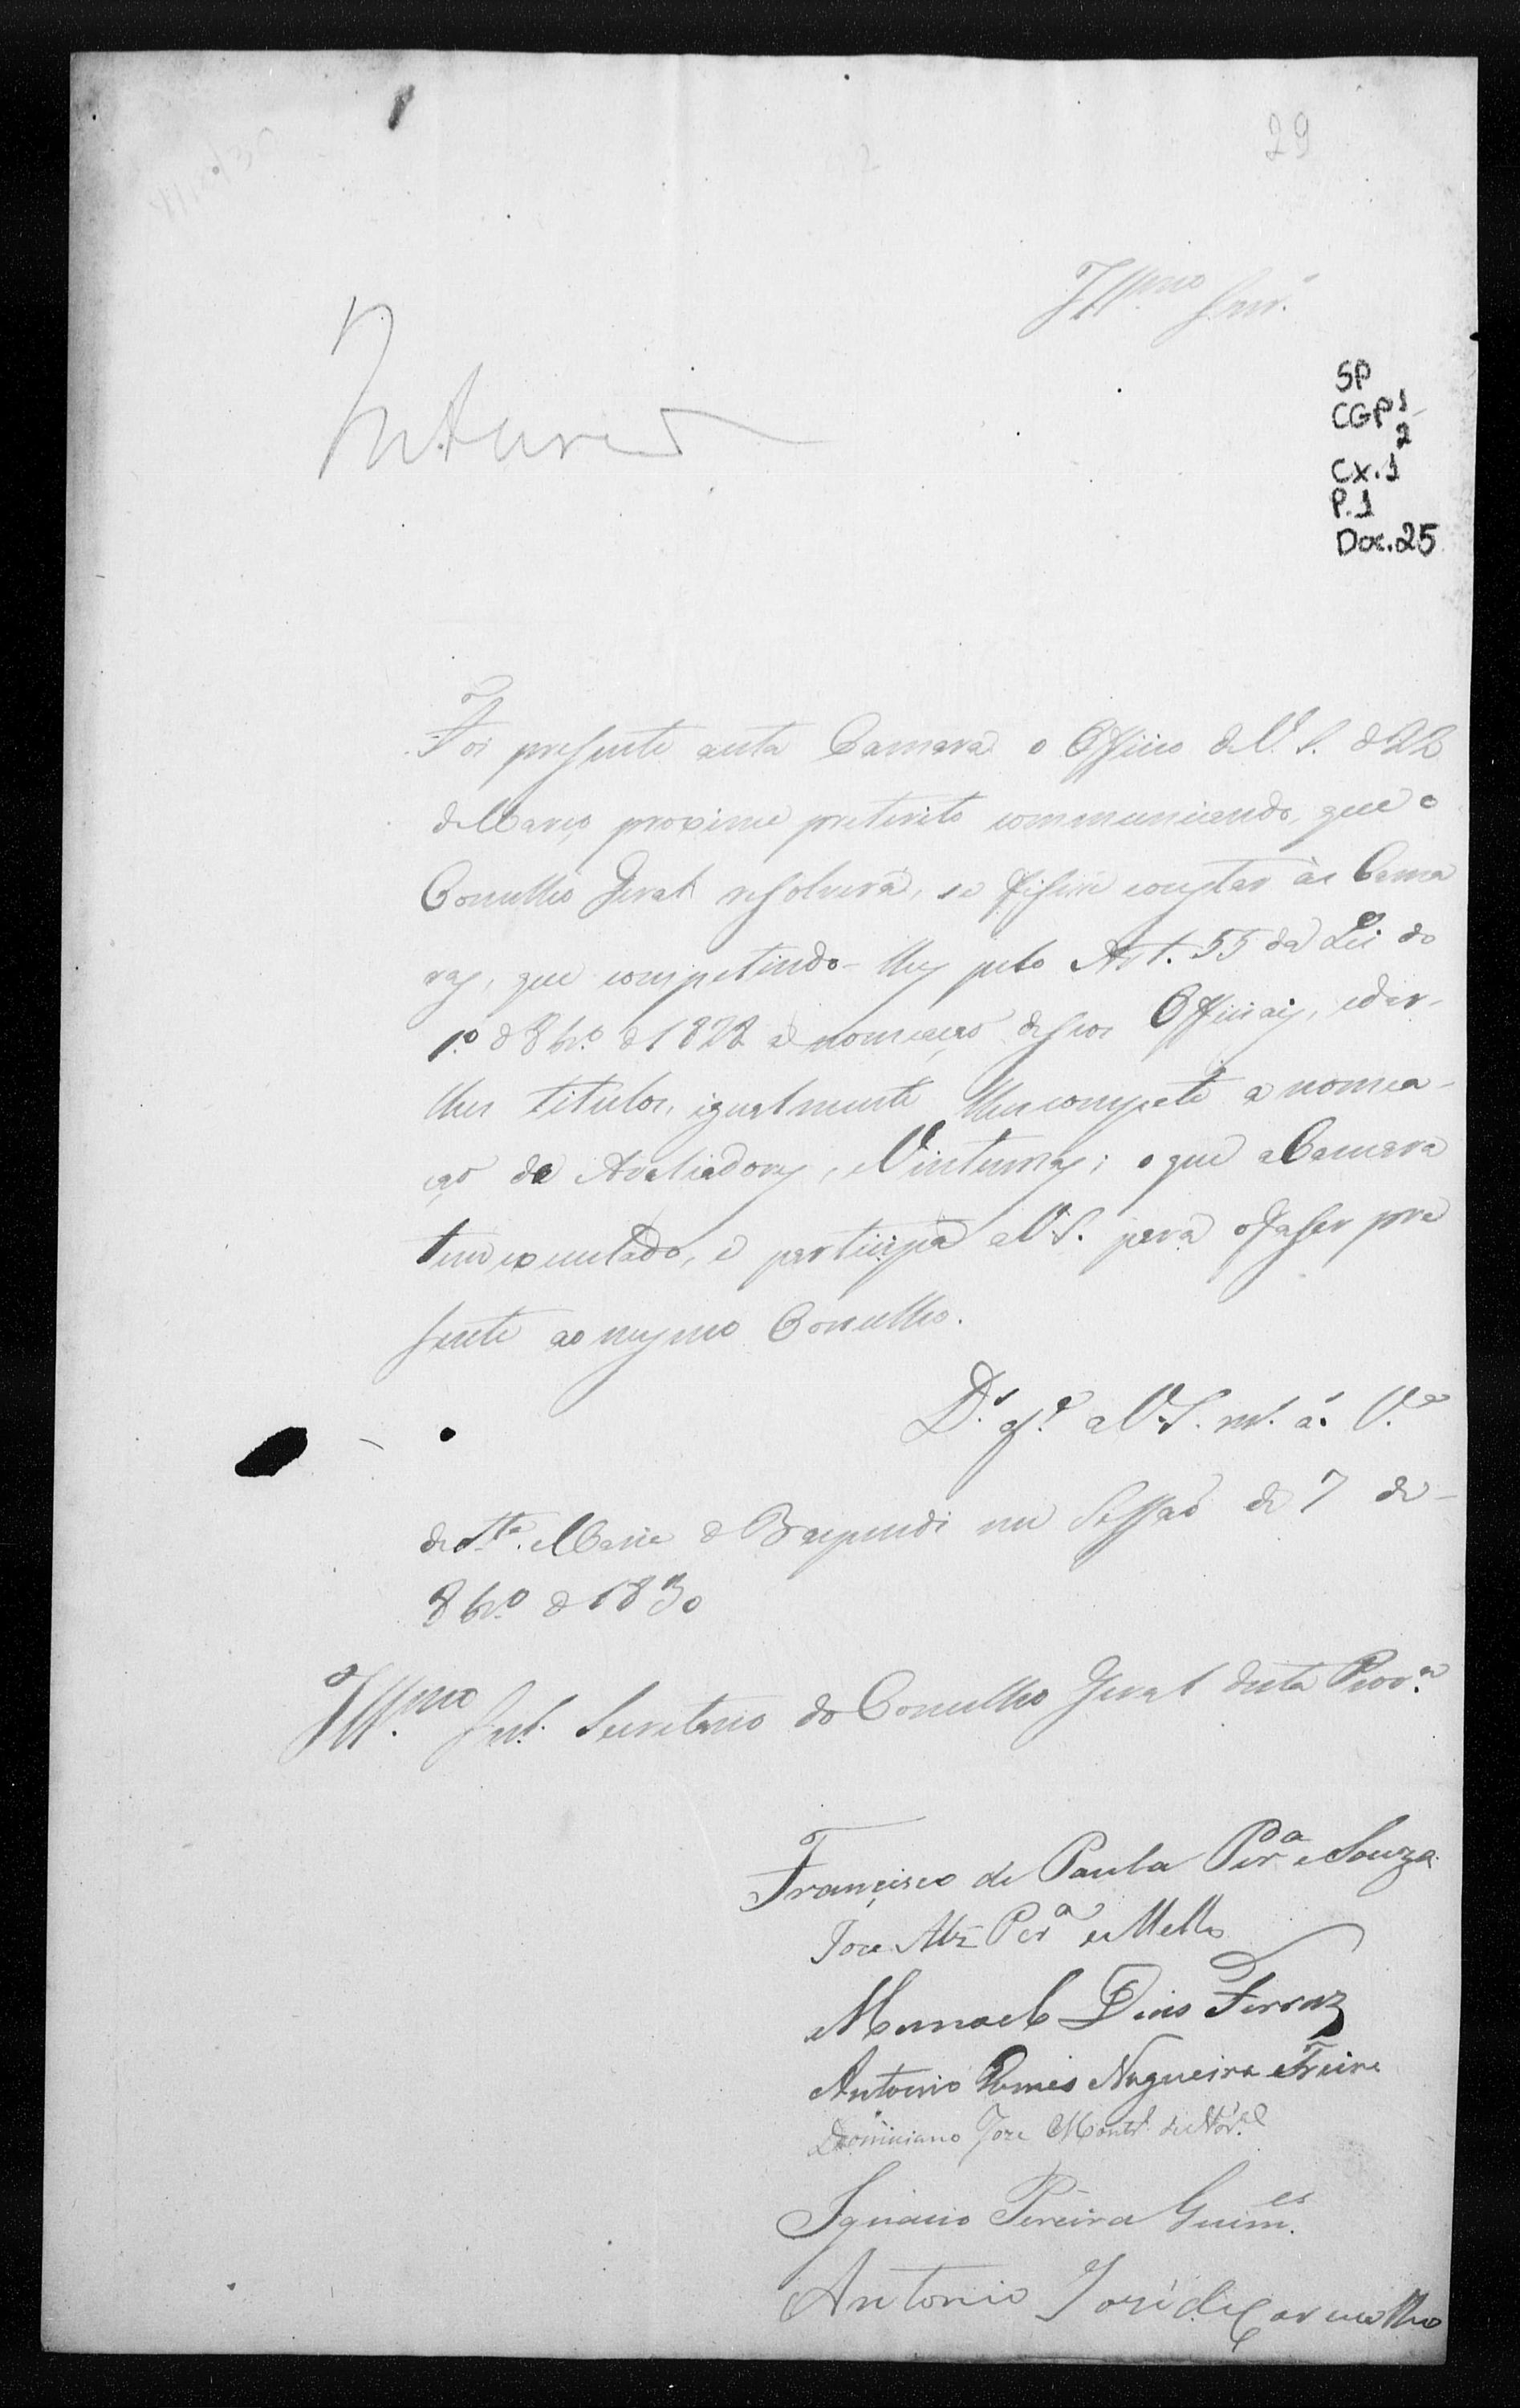 29
Illmo Snr.
SP
CGP 1
2
Cx.1
P.1
Doc.25
Inteirad
Foi presente a esta Camara o Officio de V. S. de 22
de Março proximo preterito communicando, que o
Conselho Geral resolvera, se fisesse constar ás Cama
ras, que competindo-lhes pelo Art. 55 da Lei do
1.º de 8br.º de 1828 a nomeação de seos Officiaes, e dar-
lhes titulos, igualmente lhes compete a nomea-
ção de Avaliadores, e Vintenas; o que a Camara
tem executado, e participa a V. S. para o faser pre
sente ao mesmo Conselho.
D.s g.e a V. S. m.s a.s V.a
de S.ta Maria de Baependi em Sessão de 7 de
8br.º de 1830
Illmo Snr. Secretario do Conselho Geral desta Prov.a
Francisco de Paula Per.a e Souza
Joze Alz Per.a e Mello
Manoel Dias Ferraz
Antonio Gomes Nogueira Freire
Dominiano Joze Montr.o de Nor.al
Ignacio Pereira Guim.es
Antonio José de Carvalho